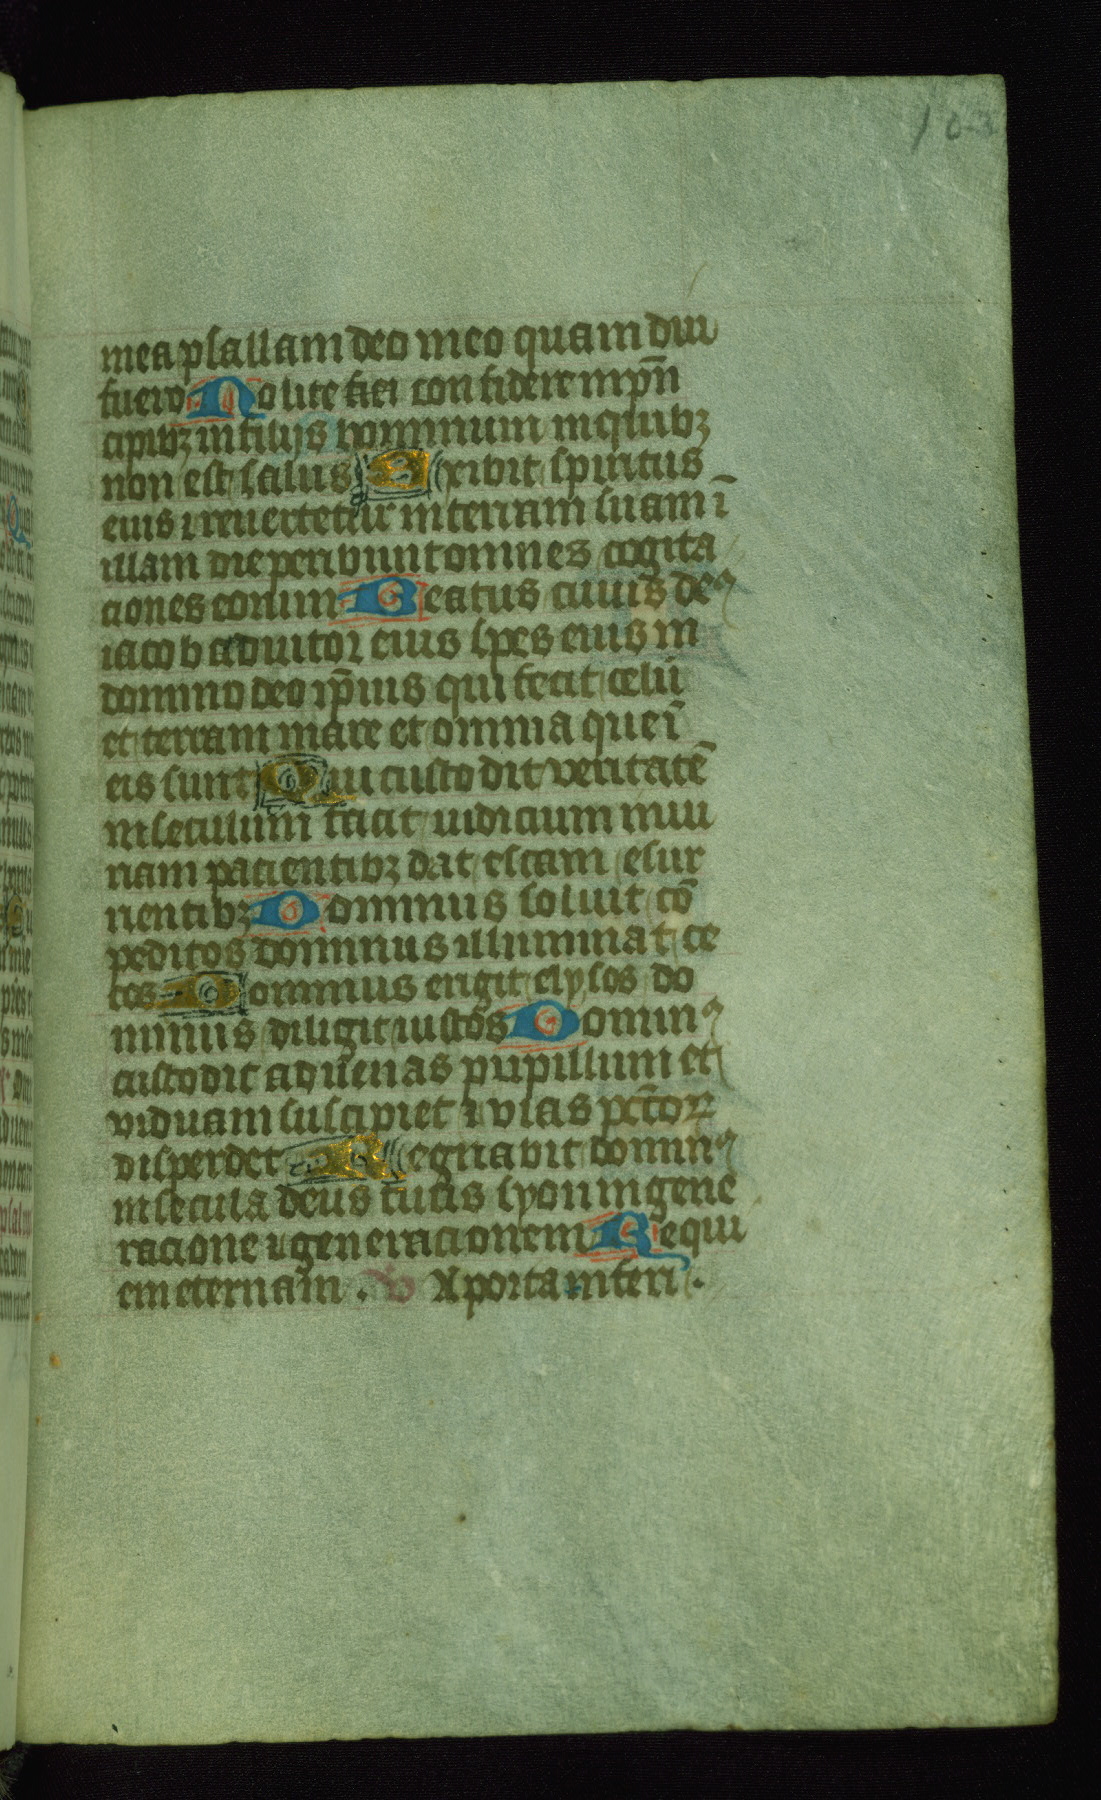 103
mea psallam deo meo quam diu
fuero Nolite fici confidere in pn̄
cipibꝫ in filijs hominum in quibꝫ
non est salus Exibit spiritus
eius ⁊ reuertetur in terram suam ī
illam die peribunt omnes cogita
ciones eorum Beatus cuius deꝰ
iacob adiutor eius spes eius in
domino deo ip̄ius qui fecit celū
et terram mare et omnia que ī
eis sunt Qui custodit veritatē
in seculum facit iudicium iniu
riam pacientibꝫ dat escam esur
rientibꝫ Dominus soluit cō
peditos dominus illuminat ce
cos Dominus erigit elysos do
minus diligit iustos Dominꝰ
custodit aduenas pupillum et
viduam suscipiet ⁊ vias pcc̄toꝝ
disperdet Regnabit dominꝰ
in secula deus tuus syon in gene
racione ⁊ generacionem Requi
em eternam . v A porta inferi .